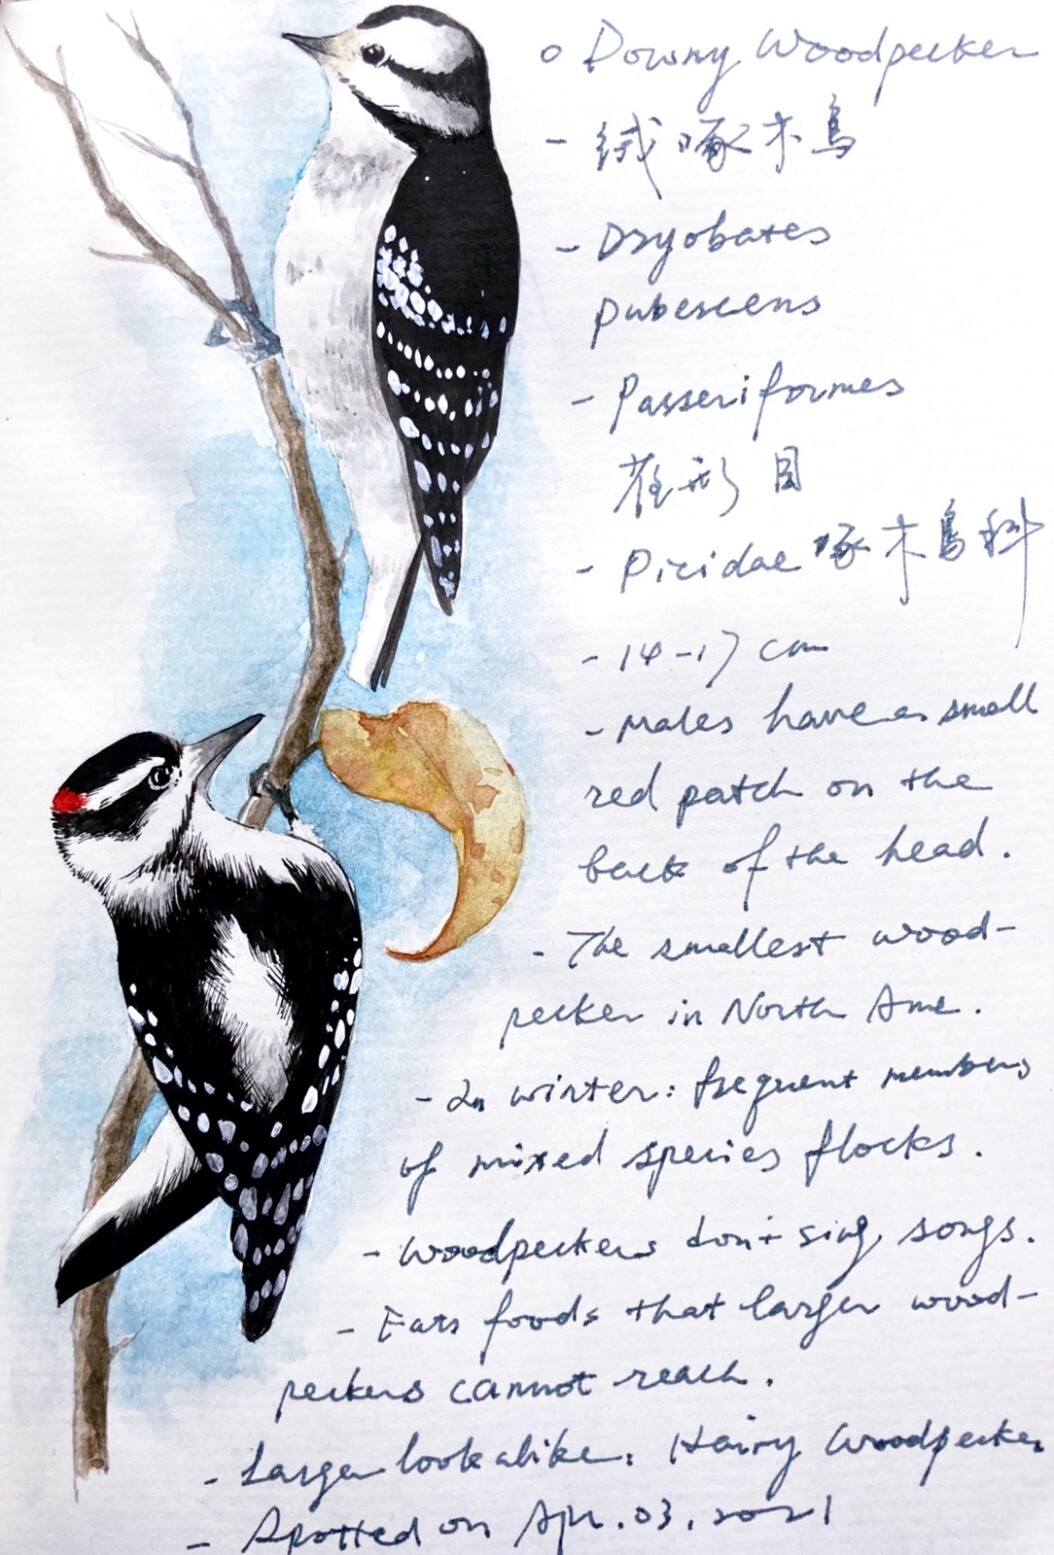 o Downy Woodpecker
- 绒啄木鸟
- Dryobates
pubescens
- Passeriformes
雀形目
- Picidae 啄木鸟科
- 14-17 cm
- Males have a small
red patch on the
back of the head.
- The smallest wood-
pecker in North Ame.
- In winter: frequent members
of mixed species flocks.
- Woodpeckers don't sing songs.
- Eats foods that larger wood-
peckers cannot reach.
- Larger lookalike: Hairy Woodpecker
- Spotted on Apr. 03, 2021